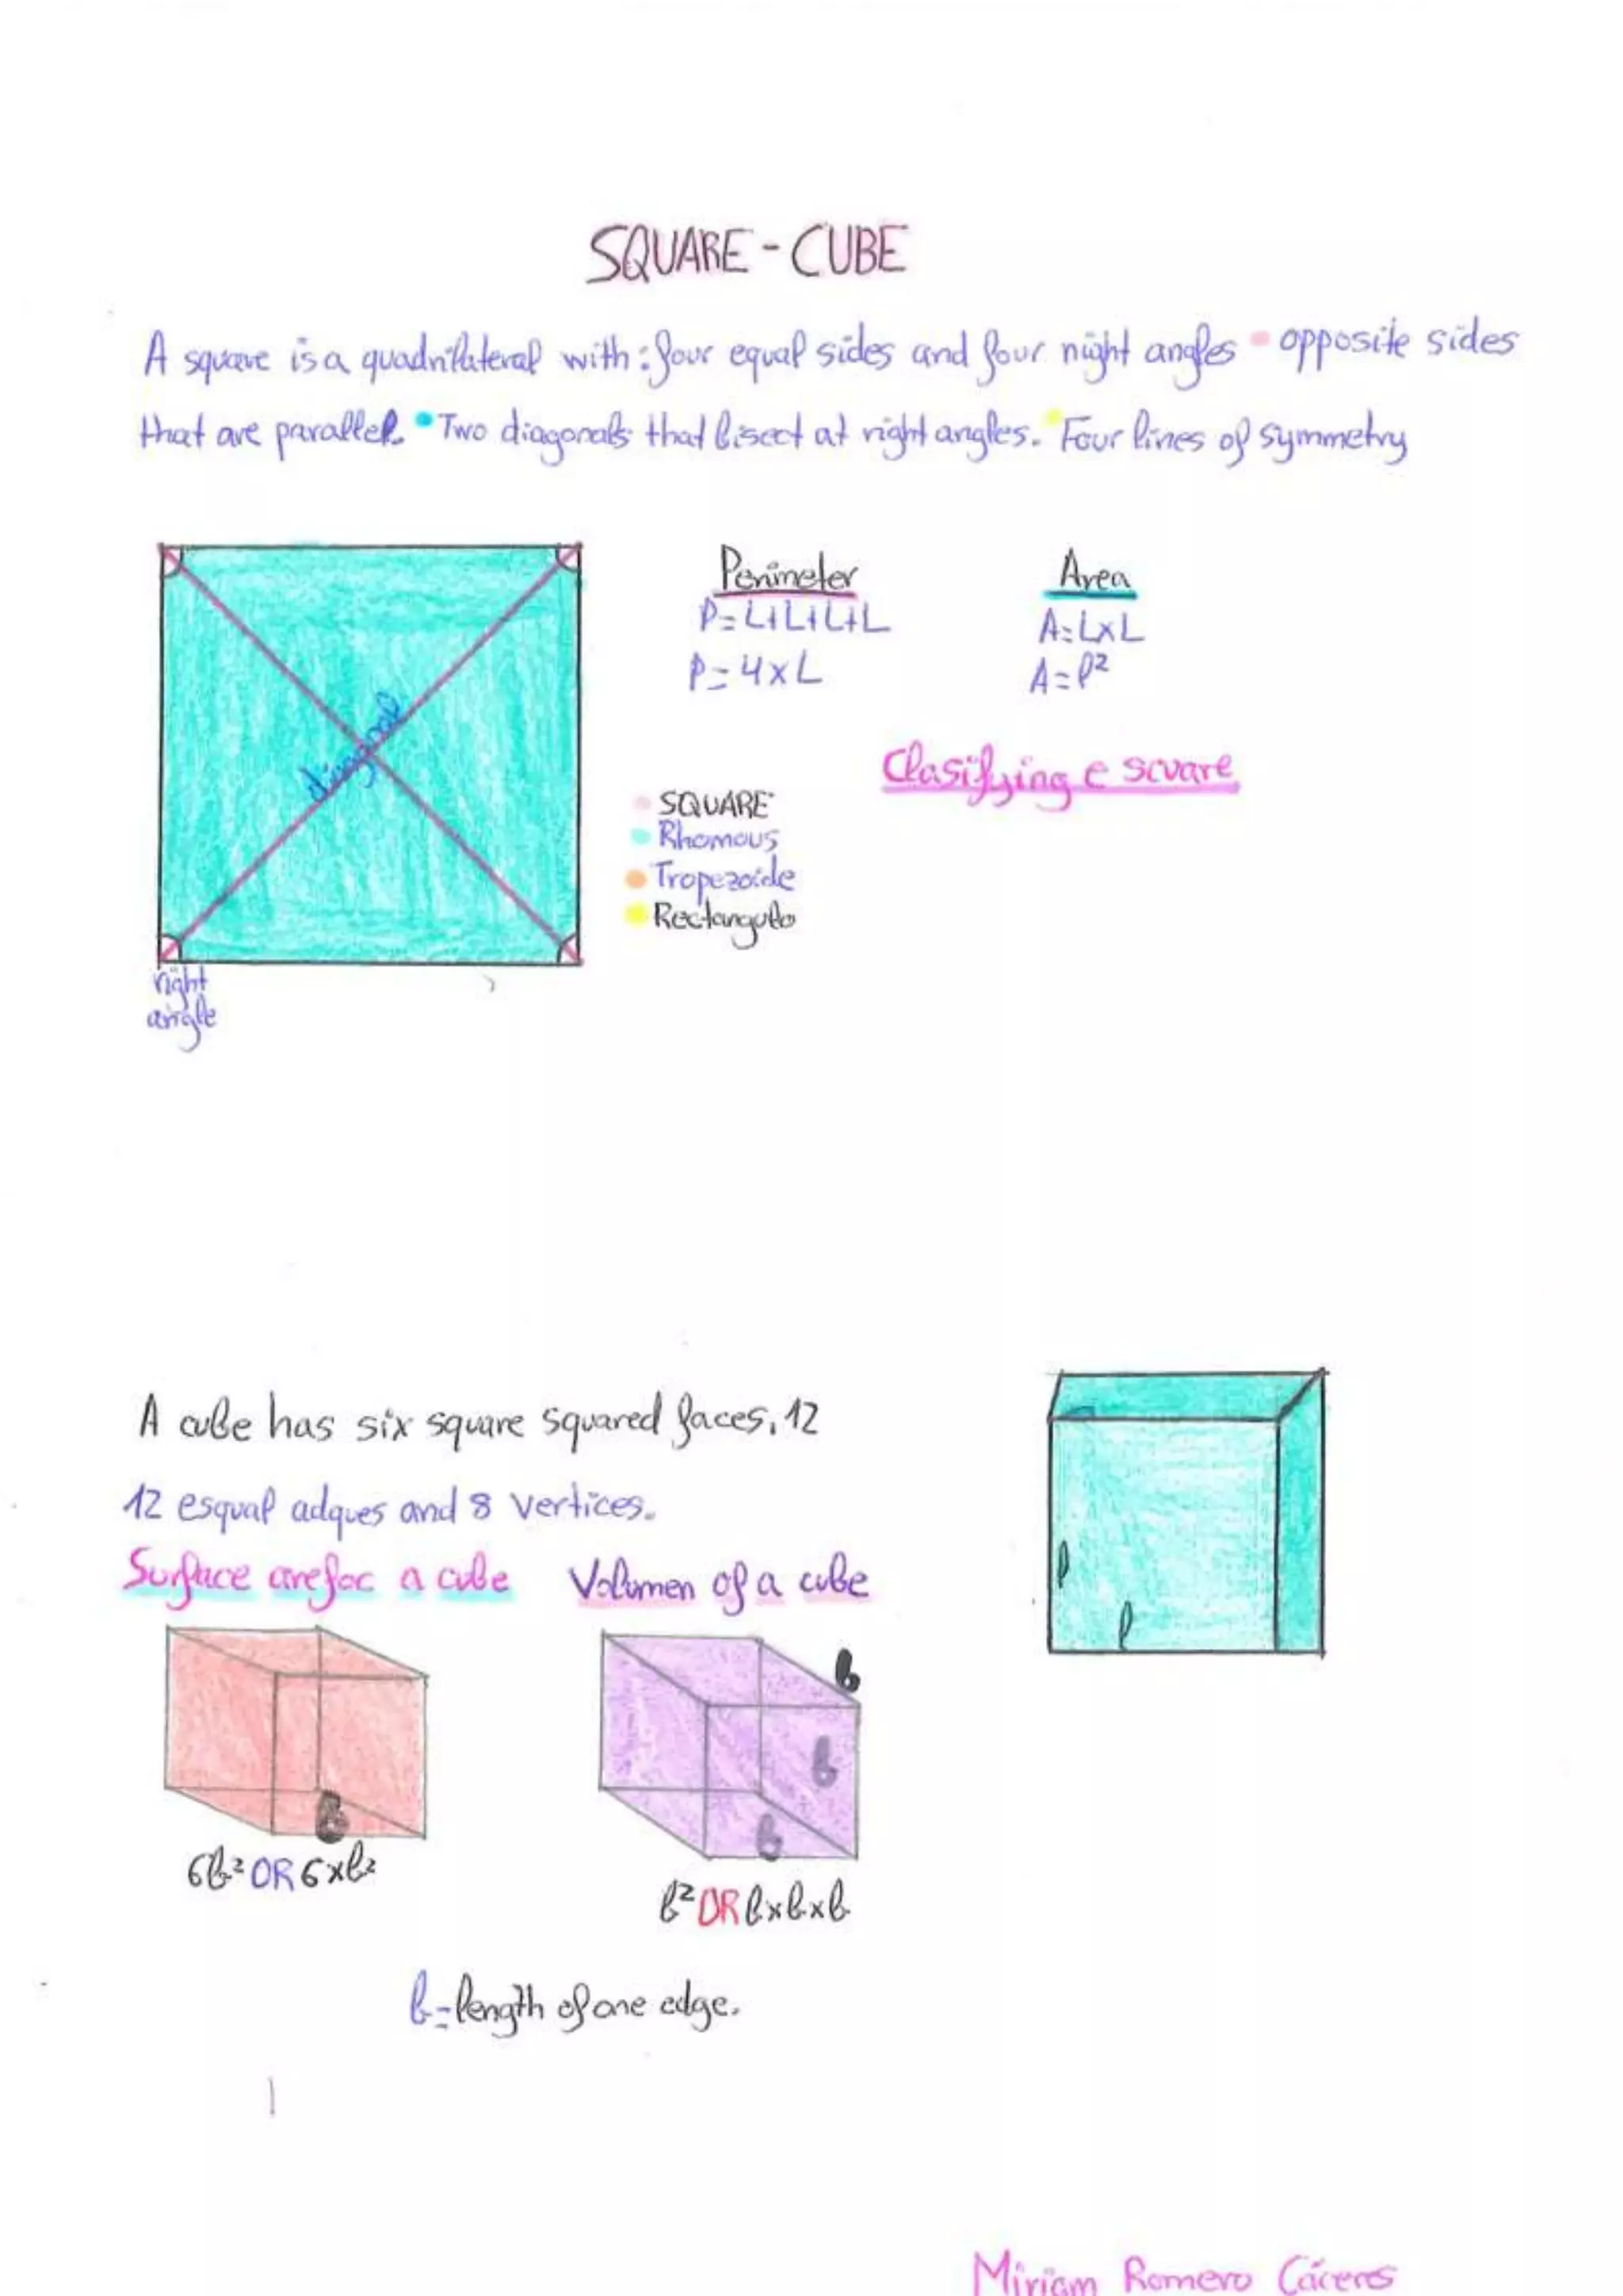 SQUARE - CUBE
A square is a quadrilateral with: four equal sides and four right angles • opposite sides
that are parallel. • Two diagonals that bisect at right angles. • Four lines of symmetry
Perimeter
P=L+L+L+L
P=4xL
Area
A=LxL
A=l²
diagonal
Clasifying e scvare
SQUARE
Rhomous
Tropezoide
Rectangulo
right
angle
A cube has six square squared faces, 12
12 esqual adques and 8 vertices.
Surface arefac a cube
Volumen of a cube
l
l
b
b
b
b
6b² OR 6xb²
b² OR bxbxb
b=length of one edge.
Miriam Romero Cáceres